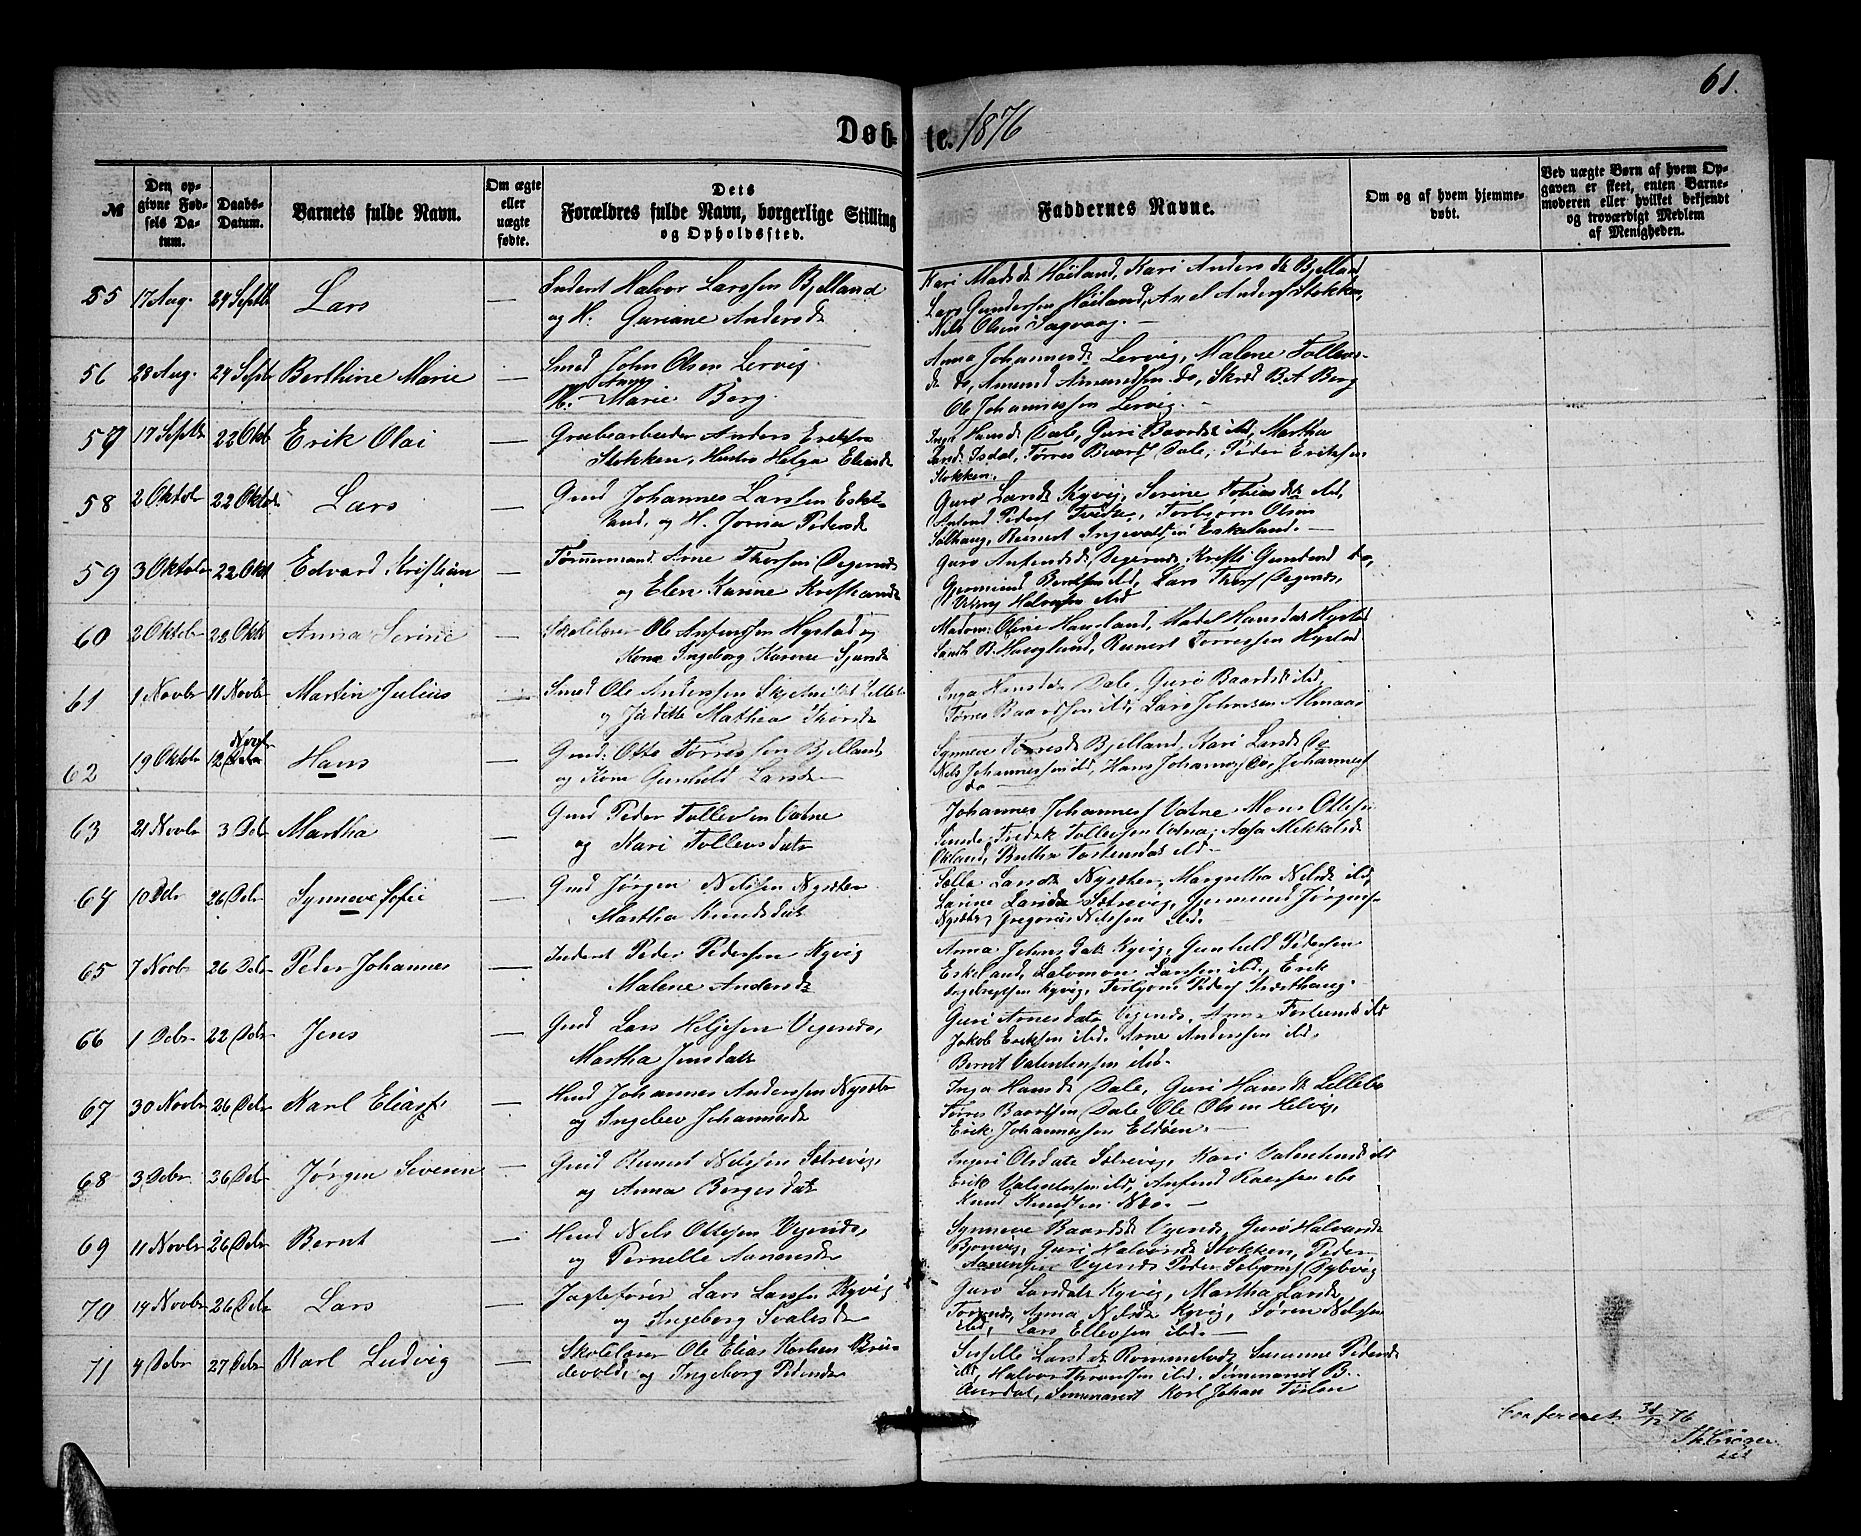 61.
Døbte. 1876
№
Den opgivne Fødsels Datum.
Daabs-Datum.
Barnets fulde Navn.
Om ægte eller uægte fødte.
Dets Forældres fulde Navn, borgerlige Stilling og Opholdssted.
Faddernes Navne.
Om og af hvem hjemmedøbt.
Ved uægte Børn af hvem Opgaven er skeet, enten Barnemoderen eller hvilket bekjendt og troværdigt Medlem af Menigheden.
55 17 Aug. 24 Septb Lars — Inderst Halvor Larssen Bjelland
og H. Guriane Andersd
Kari Madsd Høiland, Kari Andersd Bjelland
Lars Gundersen Høiland, Axel Anders Stokken,
Nils Olsen Sagvaag. —
56 28 Aug. 24 Septb Berthine Marie — Smed John Olsen Lervig
H. Anne Marie Berg.
Anna Johannesd Lervig, Malene Tollevs-
d do, Amund Amundsen do, Skræd B. A. Berg
Ole Johannessen Lervig. —
57 17 Septb 22 Okt Erik Olai — Grubearbeider Anders Eriksen
Stokken, Hustro Helga Eliasd
Inga Hansd Dale, Guri Baardsd ibd, Martha
Isdal, Tørres Baards Dale, Peder Eriksen
Stokken.
58 2 Oktobr 22 Oktobr Lars — Gmd Johannes Larssen Eske-
land, og H. Jorina Pedersd
Guro Larsd Kyvig, Serine Tobiasd ibd,
Anfind Peders, Torbjørn Olsen
Solhaug, Reinert Ingevaldsen Eskeland. —
59 3 Oktobr 22 Okt Edvard Kristian — Tømmermand Arne Thorsen Vegernes
og Elen Karine Kristiansd
Guro Anfindsd Degernes, Kristi Gundersd do,
Gjermund Berntsen ibd, Lars Thors Degernes,
Halvorsen ibd
60 2 Oktobr 28 Oktb Anna Serine — Skolelærer Ole Anfindsen Hystad og
Kone Ingeborg Karine Sjursd
Madam Oline Haugland, Madel Hansdat Hystad
B. Haugland, Reinert Tørressen Hystad
61 1 Novbr 11 Novbr Martin Julius — Smed Ole Anderssen Lillebø
og Judithe Mathea Thorsd
Inga Hansdat Dale, Guro Baardsd ibd,
Tørres Baardsen ibd, Lars Johnsen Almaas
62 19 Oktobr 12 Novbr Hans — Gmd: Otto Tørressen Bjelland
og Kone Gunhild Larsd —
Synneve Tørresd Bjelland, Kari Larsd do
Nels Johannessen ibd, Hans Johannes do, Johannes
do —
63 21 Novbr 3 Debr Martha — Gmd Peder Tollevsen Vatne
og Kari Tollevsdatr
Johannes Johannes Vatne Mons Ottesen
Tollevsen Vatne, Aasa Mikkalsd
Økland, Brita Torstensdat ibd —
64 10 Debr 26 Debr Synneve Sofie — Gmd Jørgen Nilssen Nysæter
Martha Knudsdat
Larsd Nysæter, Margretha Nilsd ibd,
Larine Larsd Sætrevig, Gjermund Jørgens-
Nysæter, Gregorius Nilssen ibd. —
65 7 Novb 26 Debr Peder Johannes — Inderst Peder Pedersen Kyvig
Malene Andersd
Anna Johnsdat Kyvig, Gunhild Pedersen
Eskeland, Salomon Larssen ibd., Erik
Ingebrigtsen Kyvig, Torbjørn Peders
66 1 Debr 22 Debr Jens — Gmd Lars Heljesen Vegernes,
Martha Jensdatr
Guri Arnesdatr Vigernes, Torstensd ibd
Jakob Eriksen ibd. Arne Anderssen ibd.
Bernt Valentinsen ibd. —
67 30 Novbr 26 Debr Karl Elias — Hmd Johannes Anderssen Nysætr
og Ingebor Johannesd
Inga Hansd Dale, Guri Hansd Lillebø
Tørres Baardsen Dale Ole Olsen Helvig,
Erik Johannessen Eldøen. —
68 3 Debr 26 Debr Jørgen Severin — Gmd Reinert Nilssen Sætrevig,
og Anna Børgesdatr
Ingeri Olsdatr Sætrevig, Kari Valentinsd ibd
Erik Valentinsen ibd, Anfind Roaldsen ibd
Knud Knudsen. —
69 11 Novbr 26 Debr Bernt — Hmd Nels Ottesen Vegernes,
og Pernelle Aanensd
Synneve Baardsd Vigernes, Guro Halvarsd
Guri Halvorsd Stokken, Peder
Aanensen Vigernes Peder Dybvig
70 14 Novbr 26 Debr Lars — Jagtefører Lars Larssen Kyvig
og Ingeborg Svalesd
Guro Larsdatr Kyvig, Martha Larsd
Anna Nelsd Kyvig, Søren Nelssen
ibd, Lars Ellevsen ibd. —
71 4 Debr 27 Debr Karl Ludvig — Skolelærer Ole Elias Karlsen
og Ingeborg Pedersd
Siselle Larsdat Rommetvedt, Susanne Pedersd
ibd, Halvor Thronsen ibd. Seminarist B.
Aurdal, Seminarist Karl Johan
Confereret 31/12 76